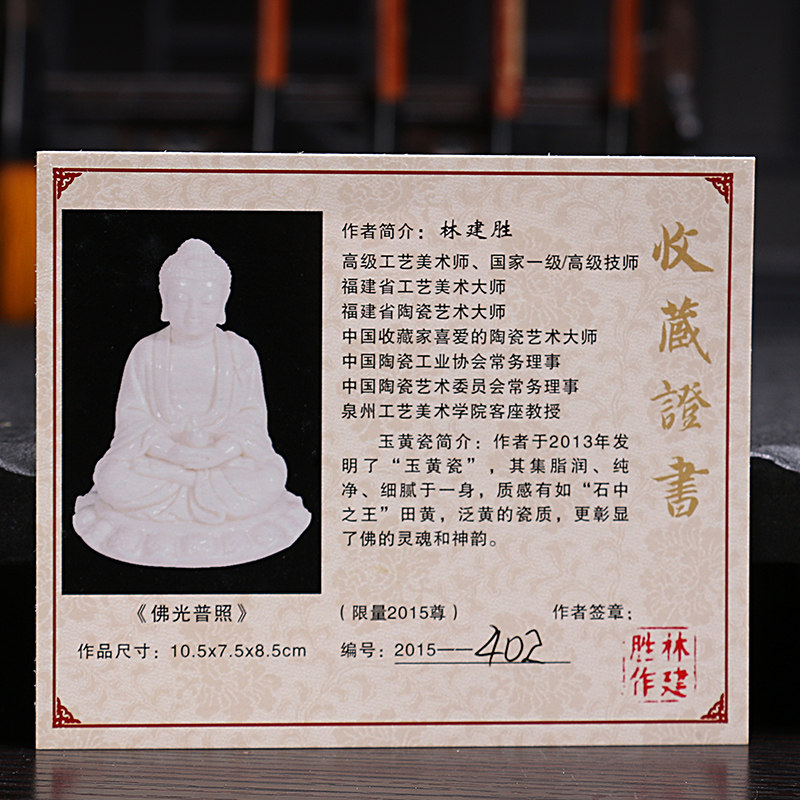 收藏證書
作者简介：林建胜
高级工艺美术师、国家一级/高级技师
福建省工艺美术大师
福建省陶瓷艺术大师
中国收藏家喜爱的陶瓷艺术大师
中国陶瓷工业协会常务理事
中国陶瓷艺术委员会常务理事
泉州工艺美术学院客座教授
玉黄瓷简介：作者于2013年发
明了“玉黄瓷”，其集脂润、纯
净、细腻于一身，质感有如“石中
之王”田黄，泛黄的瓷质，更彰显
了佛的灵魂和神韵。
《佛光普照》
（限量2015尊）
作者签章：
作品尺寸：10.5x7.5x8.5cm
编号：2015——402
林建
胜作